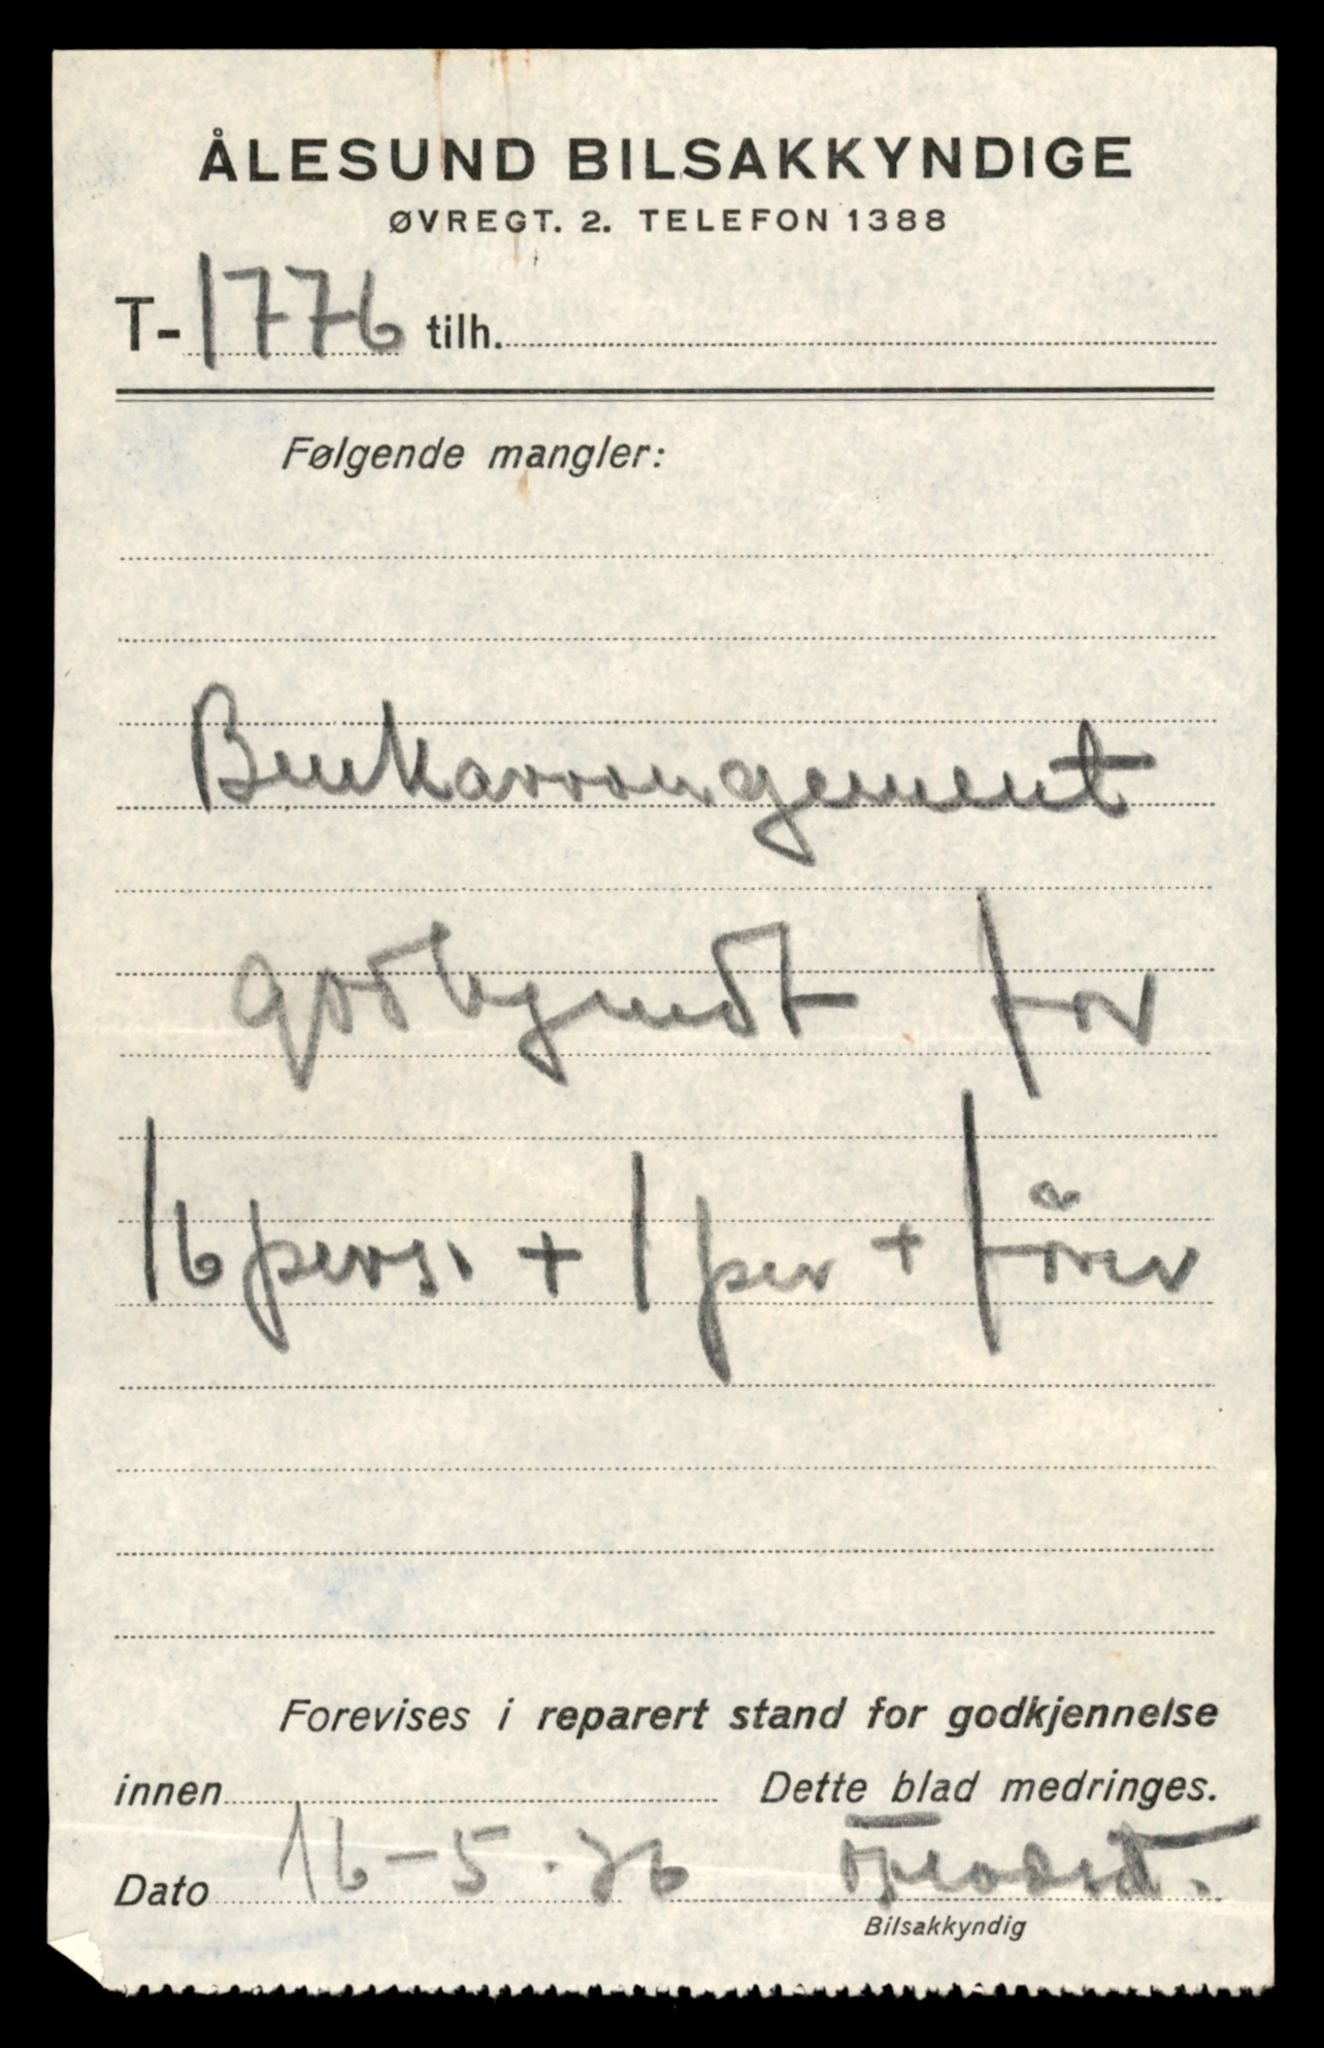 ÅLESUND BILSAKKYNDIGE
ØVREGT. 2. TELEFON 1388
T-1776 tilh.
Følgende mangler:
Benkarrangement
godkjendt for
16 pers. + 1 per + fører
Forevises i reparert stand for godkjennelse
innen Dette blad medringes.
Dato 16-5.36
Bilsakkyndig